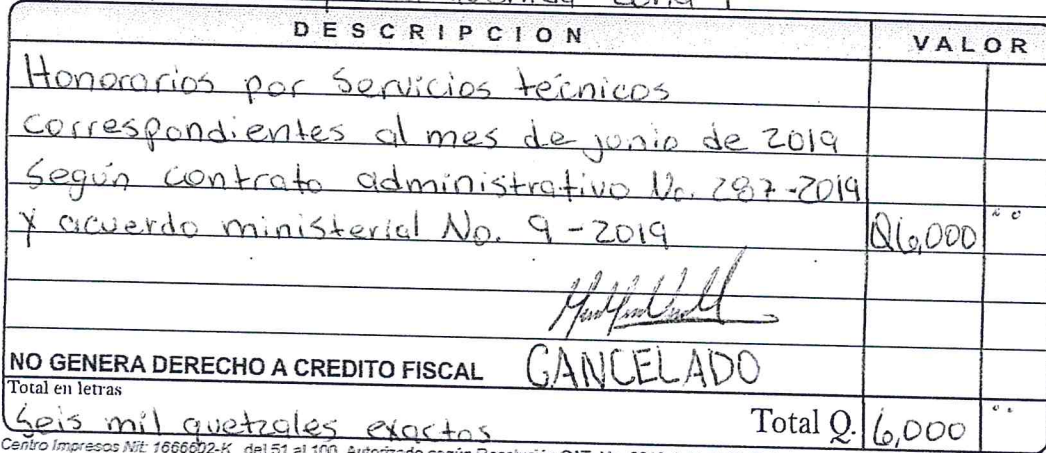 DESCRIPCION VALOR
Honorarios por Servicios técnicos
correspondientes al mes de junio de 2019
Según contrato administrativo No. 287-2019
y acuerdo ministerial No. 9-2019 Q6,000 00
NO GENERA DERECHO A CREDITO FISCAL CANCELADO
Total en letras
Seis mil quetzales exactos Total Q. 6,000 00
Centro Impresos Nit: 1666602-K del 51 al 100 Autorizado según Resolución